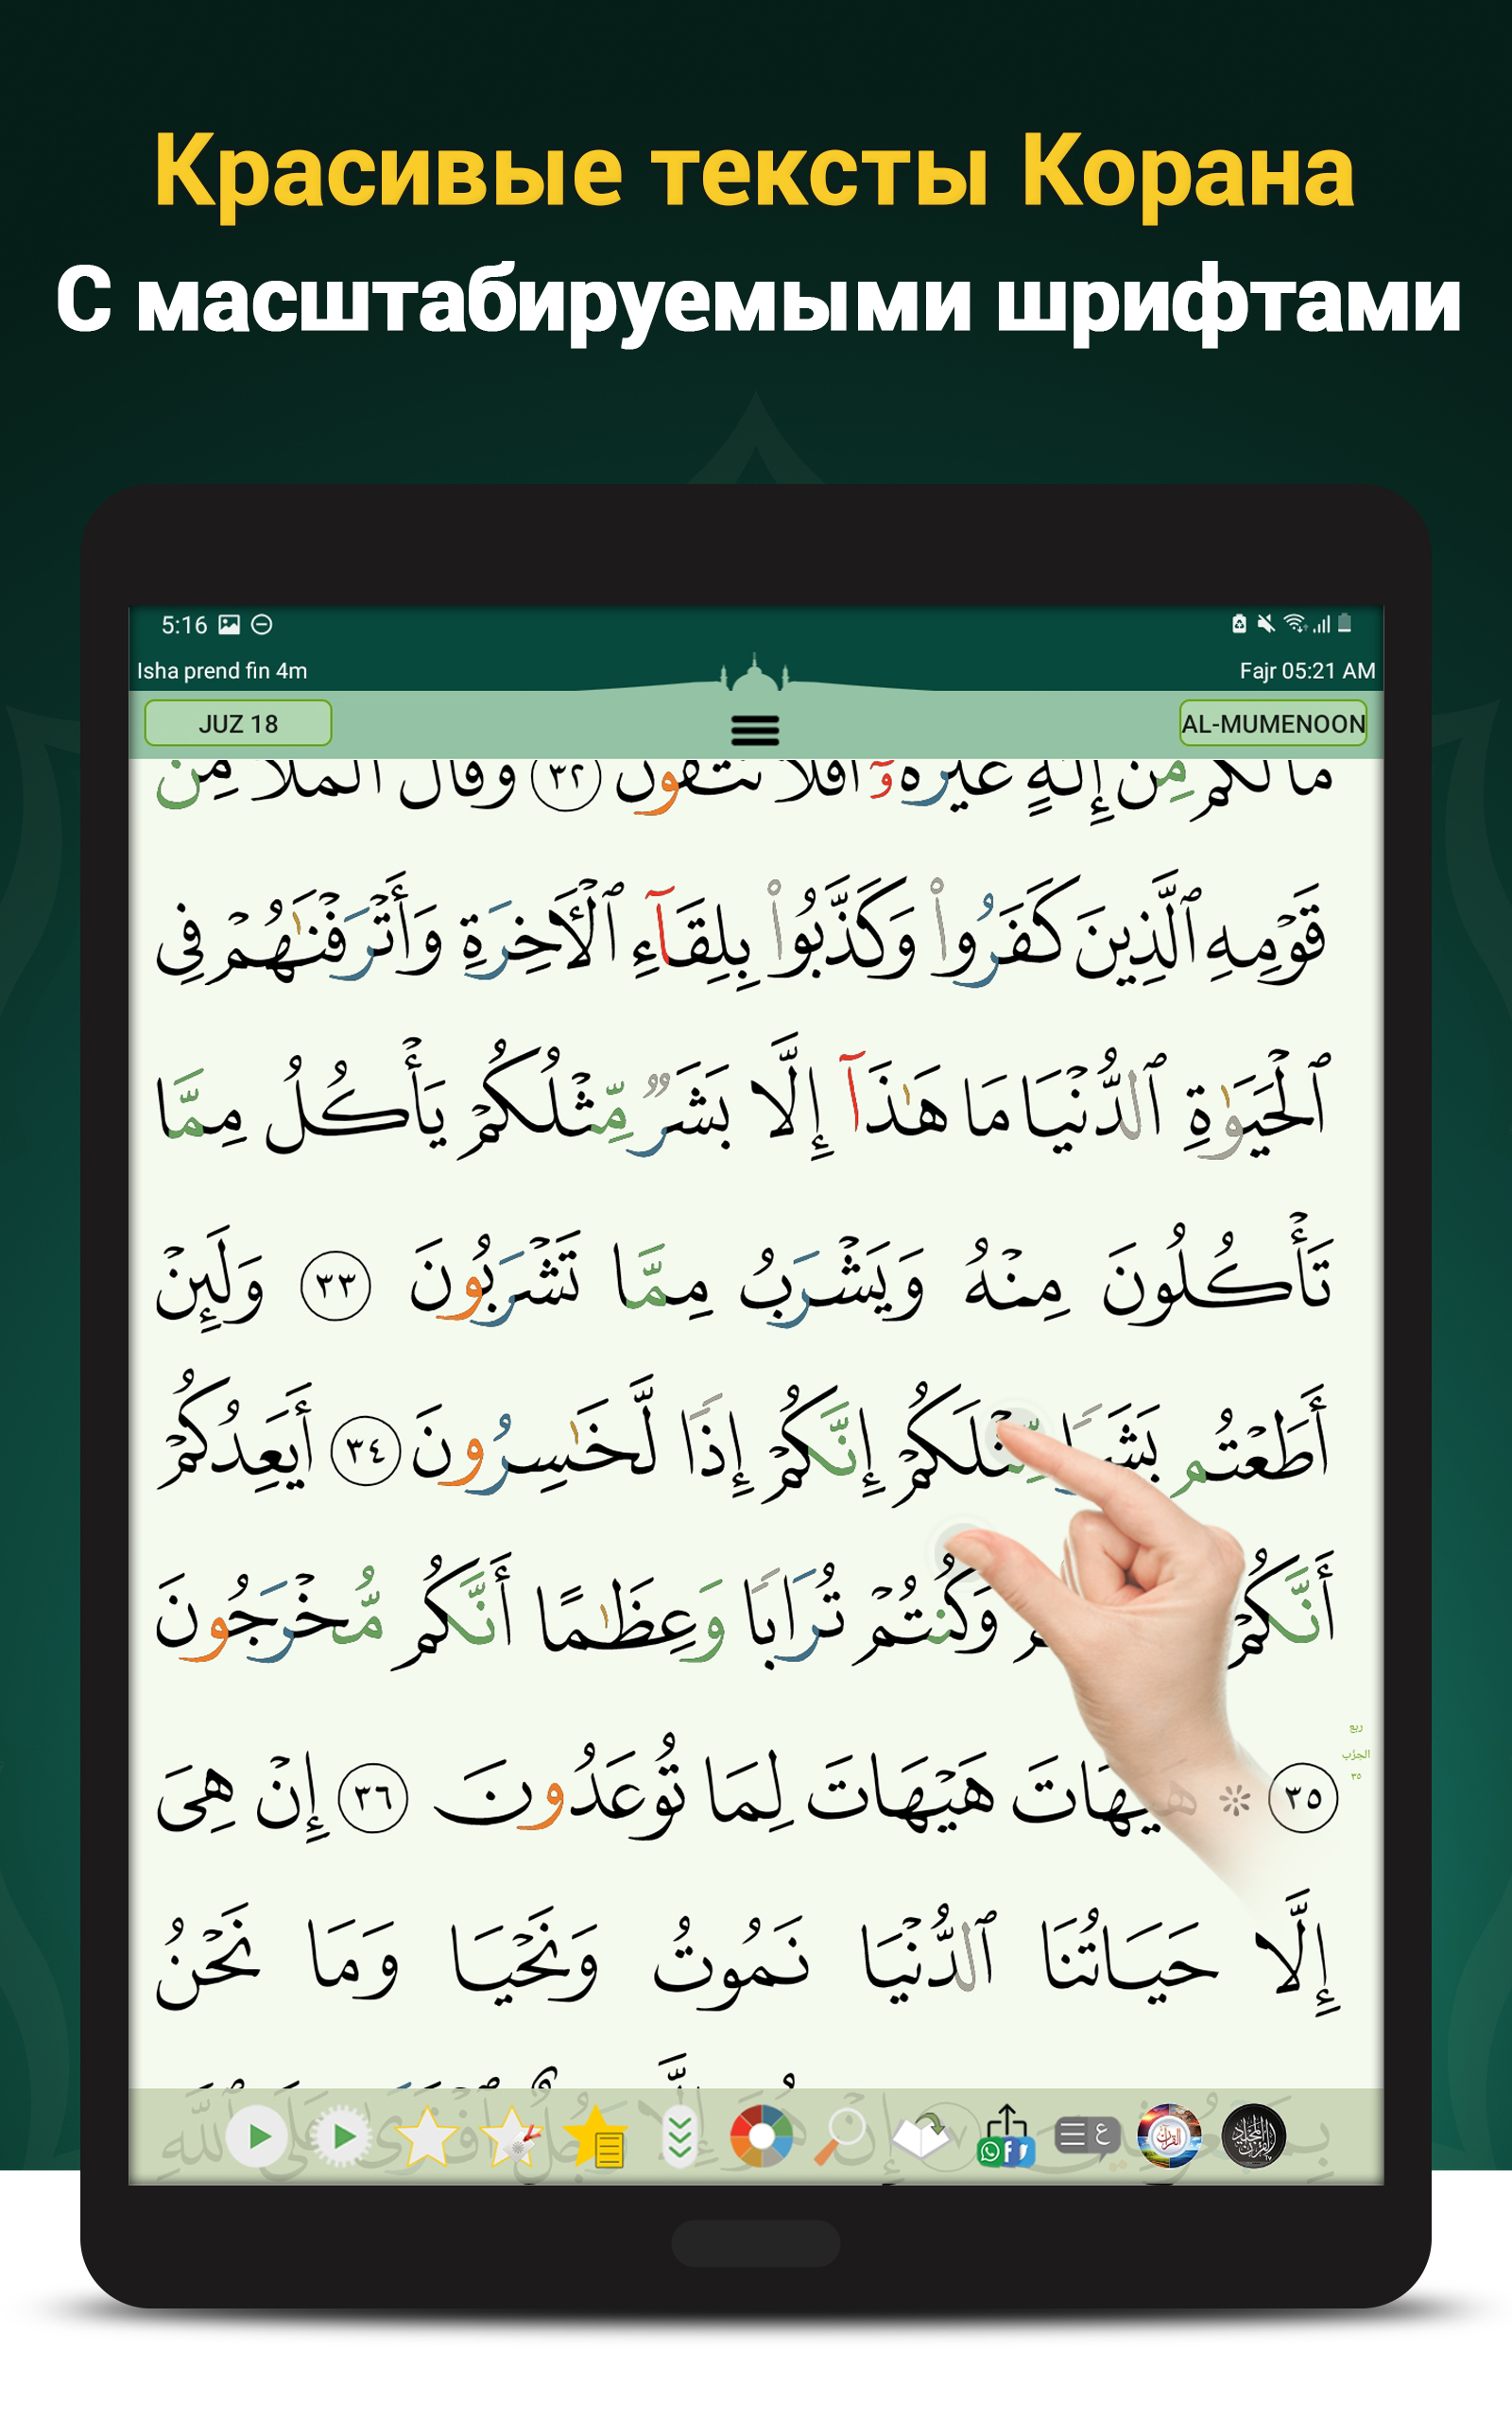 Красивые тексты Корана
С масштабируемыми шрифтами
5:16
Isha prend fin 4m
Fajr 05:21 AM
JUZ 18
AL-MUMENOON
ما لكم من إله غيره أفلا تتقون ٣٢ وقال الملأ من
قَوْمِهِ ٱلَّذِينَ كَفَرُوا۟ وَكَذَّبُوا۟ بِلِقَآءِ ٱلْأَخِرَةِ وَأَتْرَفْنَٰهُمْ فِى
ٱلْحَيَوٰةِ ٱلدُّنْيَا مَا هَٰذَآ إِلَّا بَشَرٌ مِّثْلُكُمْ يَأْكُلُ مِمَّا
تَأْكُلُونَ مِنْهُ وَيَشْرَبُ مِمَّا تَشْرَبُونَ ٣٣ وَلَئِنْ
أَطَعْتُم بَشَرًا مِّثْلَكُمْ إِنَّكُمْ إِذًا لَّخَٰسِرُونَ ٣٤ أَيَعِدُكُمْ
أَنَّكُمْ وَكُنتُمْ تُرَابًا وَعِظَٰمًا أَنَّكُم مُّخْرَجُونَ
٣٥ ۞ هَيْهَاتَ هَيْهَاتَ لِمَا تُوعَدُونَ ٣٦ إِنْ هِىَ
ربع
الحزب
٣٥
إِلَّا حَيَاتُنَا ٱلدُّنْيَا نَمُوتُ وَنَحْيَا وَمَا نَحْنُ